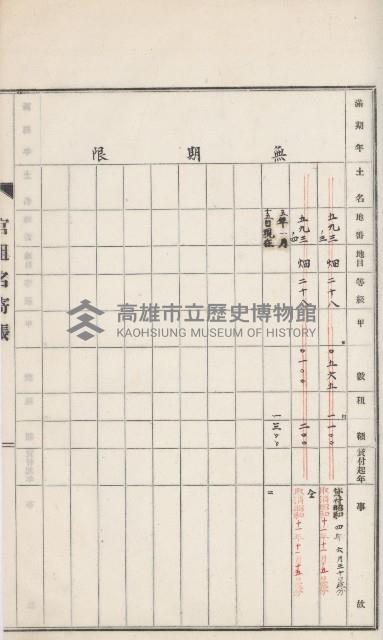 滿期年
土名
地番
地目
等級
甲
數
租額
貸付起年
事
故
無期限
五九三ノ三
畑
二十八
〇五六五
一一〇〇
貸付昭和四年六月三十日處分
取消昭和十一年十一月十五日處分
五九三ノ四
畑
二十八
〇一〇〇
二〇〇
仝
取消昭和十一年十一月十五日處分
五年一月
十五日現在
一三〇〇
官租名寄帳
高雄市立歷史博物館
KAOHSIUNG MUSEUM OF HISTORY